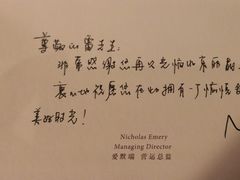 尊敬的雷先生:
非常感谢您再次光临
衷心地祝愿您在此拥有一了愉悦
美好时光!
Nicholas Emery
Managing Director
爱默瑞 营运总监